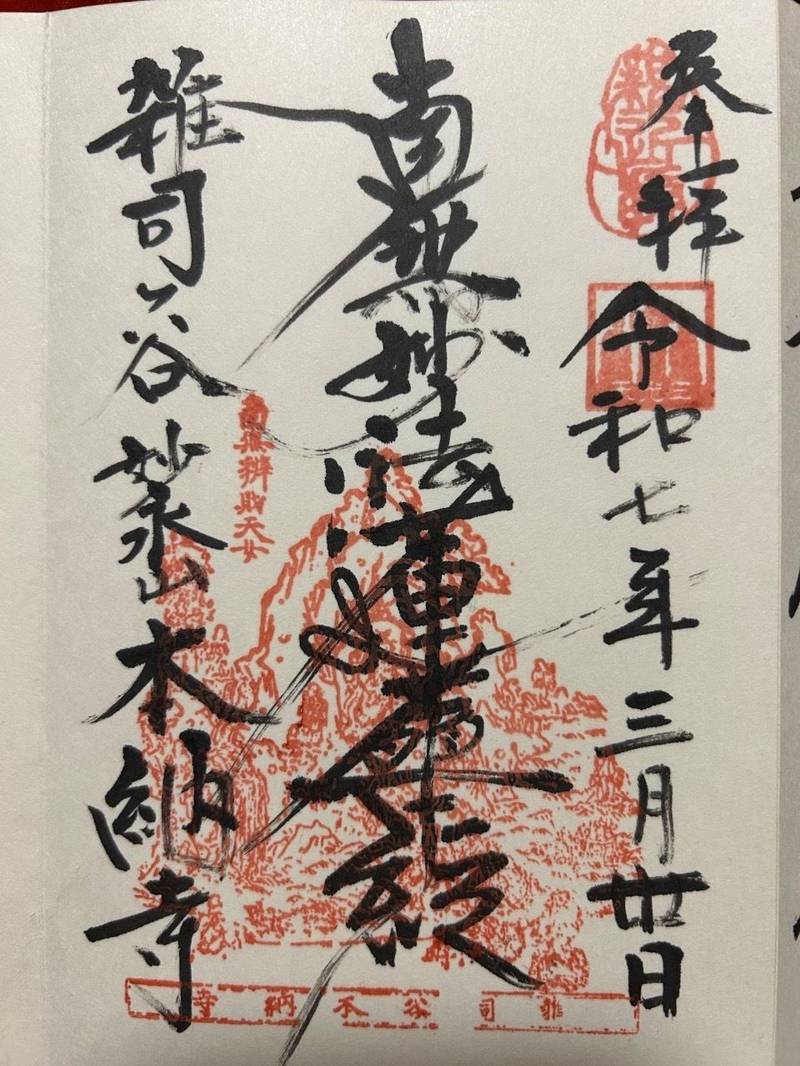 奉拝 令和七年三月廿日
南無妙法蓮華経
南無辨財天女
雑司ヶ谷 妙永山 本納寺
雑司谷本納寺